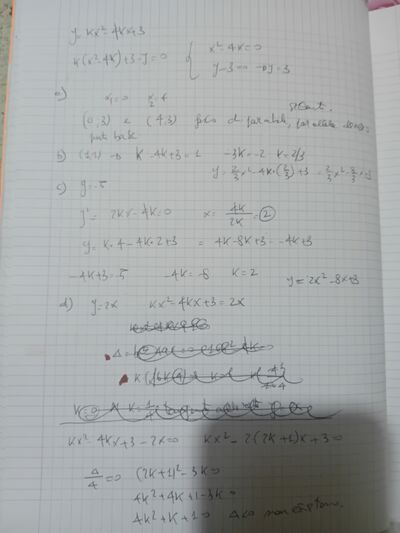 y = kx² - 4kx + 3
k(x² - 4x) + 3 - y = 0 { x² - 4x = 0
y - 3 = 0 → y = 3
a) x₁ = 0 x₂ = 4
(0,3) e (4,3)
b) (1,1) → k - 4k + 3 = 1 -3k = -2 k = 2/3
y = 2/3 x² - 4x · (2/3) + 3 = 2/3 x² - 8/3 x + 3
c) y = -5
y' = 2kx - 4k = 0 x = 4k/2k = 2
y = k·4 - 4k·2 + 3 = 4k - 8k + 3 = -4k + 3
-4k + 3 = -5 -4k = -8 k = 2 y = 2x² - 8x + 3
d) y = 2x kx² - 4kx + 3 = 2x
kx² - 4kx + 3 - 2x = 0 kx² - 2(2k+1)x + 3 = 0
Δ/4 = 0 (2k+1)² - 3k = 0
4k² + 4k + 1 - 3k = 0
4k² + k + 1 = 0 Δ<0 non